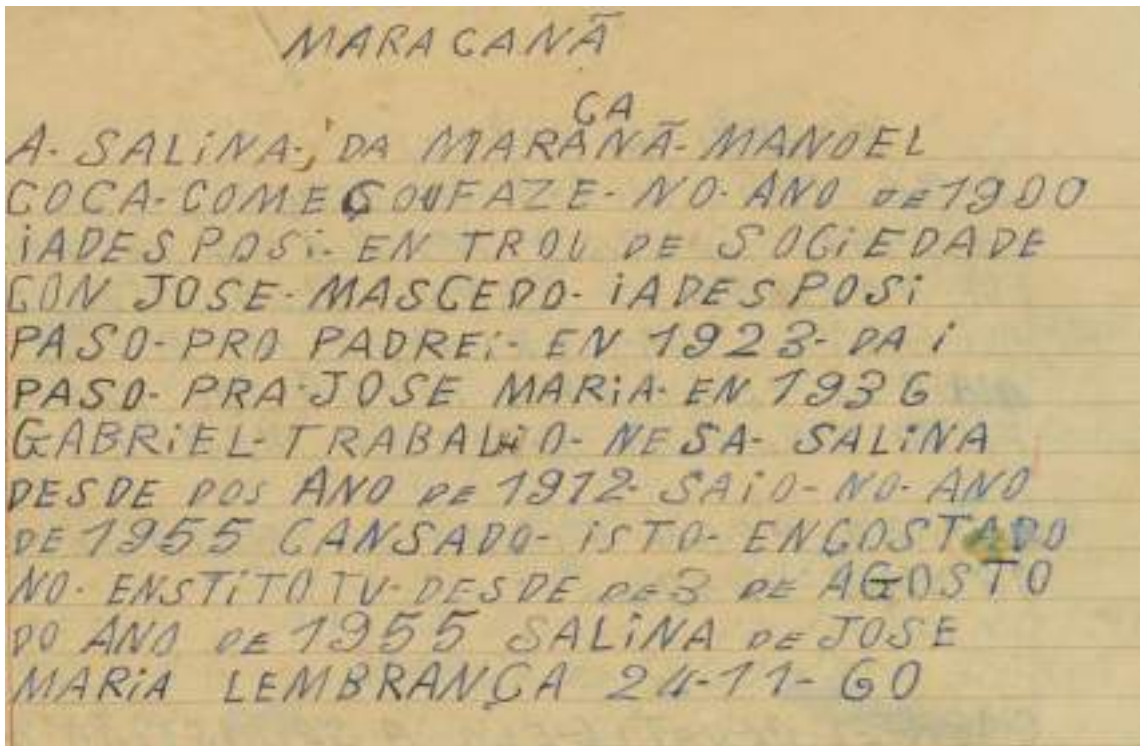 MARACANÃ
CA
A. SALiNA-, DA MARANÃ-MANOEL
COCA-COMEÇOUFAZE-NO-ANO DE 1900
iADESPOSi-ENTROU DE SOCiEDADE
CON JOSE-MASCEDO-iADESPOSi
PASO-PRO PADREi-EN 1923-DAi
PASO-PRA-JOSE MARiA-EN 1936
GABRiEL-TRABALIO-NESA-SALiNA
DESDE DOS ANO DE 1912-SAiO-NO-ANO
DE 1955 CANSADO-iSTO-ENCOSTADO
NO-ENSTiTOTU-DESDE DE 3 DE AGOSTO
DO ANO DE 1955 SALiNA DE JOSE
MARiA LEMBRANÇA 24-11-60